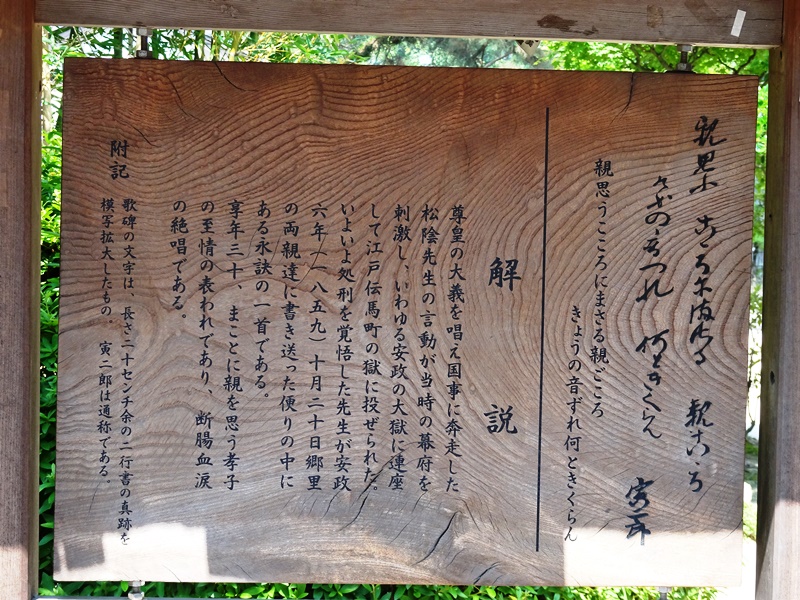 親思ふ こころにまさる 親こころ
けふの音つれ 何ときくらん
寅二郎
親思うこころにまさる親ごころ
きょうの音ずれ何ときくらん
解説
尊皇の大義を唱え国事に奔走した
松陰先生の言動が当時の幕府を
刺激し、いわゆる安政の大獄に連座
して江戸伝馬町の獄に投ぜられた。
いよいよ処刑を覚悟した先生が安政
六年(一八五九)十月二十日郷里
の両親達に書き送った便りの中に
ある永訣の一首である。
享年三十、まことに親を思う孝子
の至情の表われであり、断腸血涙
の絶唱である。
附記
歌碑の文字は、長さ二十センチ余の二行書の真跡を
模写拡大したもの。 寅二郎は通称である。